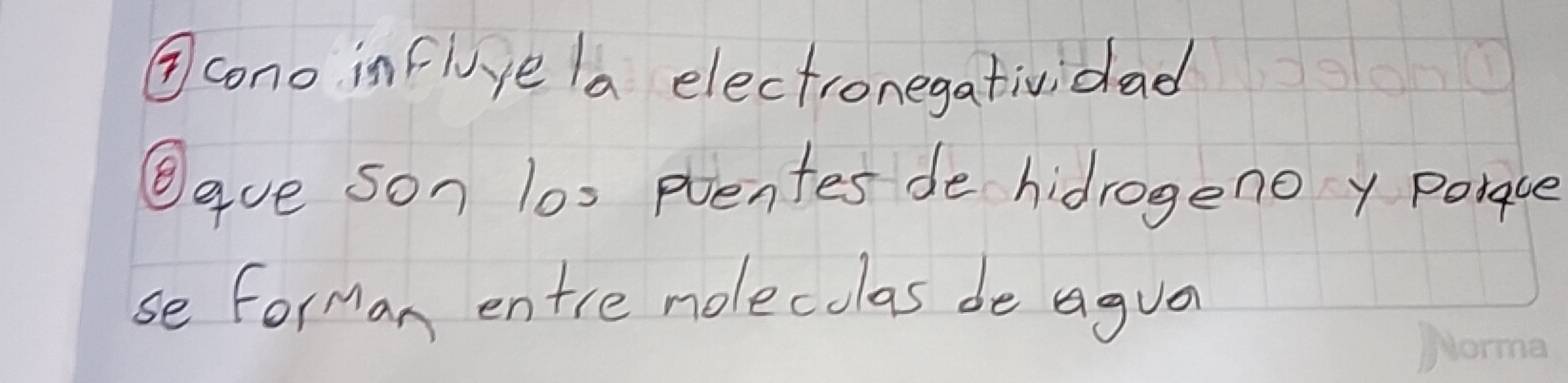 ⑦ cono influye la electronegatividad
⑧ que son los puentes de hidrogeno y porque
se forman entre moleculas de agua
Norma